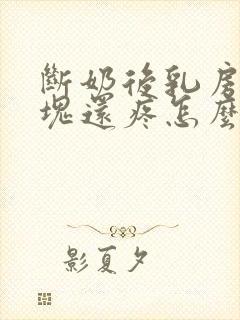 斷奶後乳房
塊還疼怎麼
影夏夕